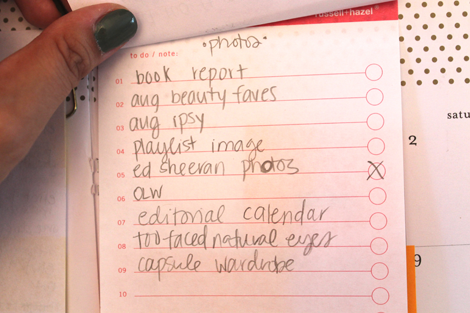 russell+hazel
"photos"
to do / note:
01 book report
02 aug beauty faves
03 aug ipsy
04 playlist image
05 ed sheeran photos X
06 OLW
07 editorial calendar
08 too faced natural eyes
09 capsule wardrobe
10
satu
2
9